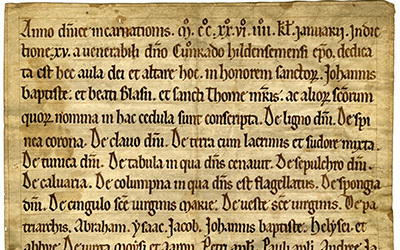 Anno dn̄ice incarnationis. M̊. C̊C̊. xx̊. vi. iiii. kł. januarij. Jndic
tione. xv. a venerabili dn̄o Cūnrado hildensemensi ep̄o. dedica
ta est hec aula dei et altare hoc. in honorem sanctoꝝ. Johannis
baptiste. et beati Blasii. et sancti Thome m̄ris. ac alioꝝ sc̄orum
quoꝝ nomina in hac cedula sunt conscripta. De ligno dn̄i. De spi
nea corona. De clauo dn̄i. De terra cum lacrimis et sudore mixta.
De tunica dn̄i. De tabula in qua dn̄s cenauit. De sepulchro dn̄i.
De caluaria. De columpna in qua dn̄s est flagellatus. De spongia
dn̄i. De cingulo sc̄e virginis marie. De veste sc̄e virginis. De pa
triarchis. Abraham. ysaac. Jacob. Johannis baptiste. Helysei. et
Petri apl̄i. Pauli apl̄i.